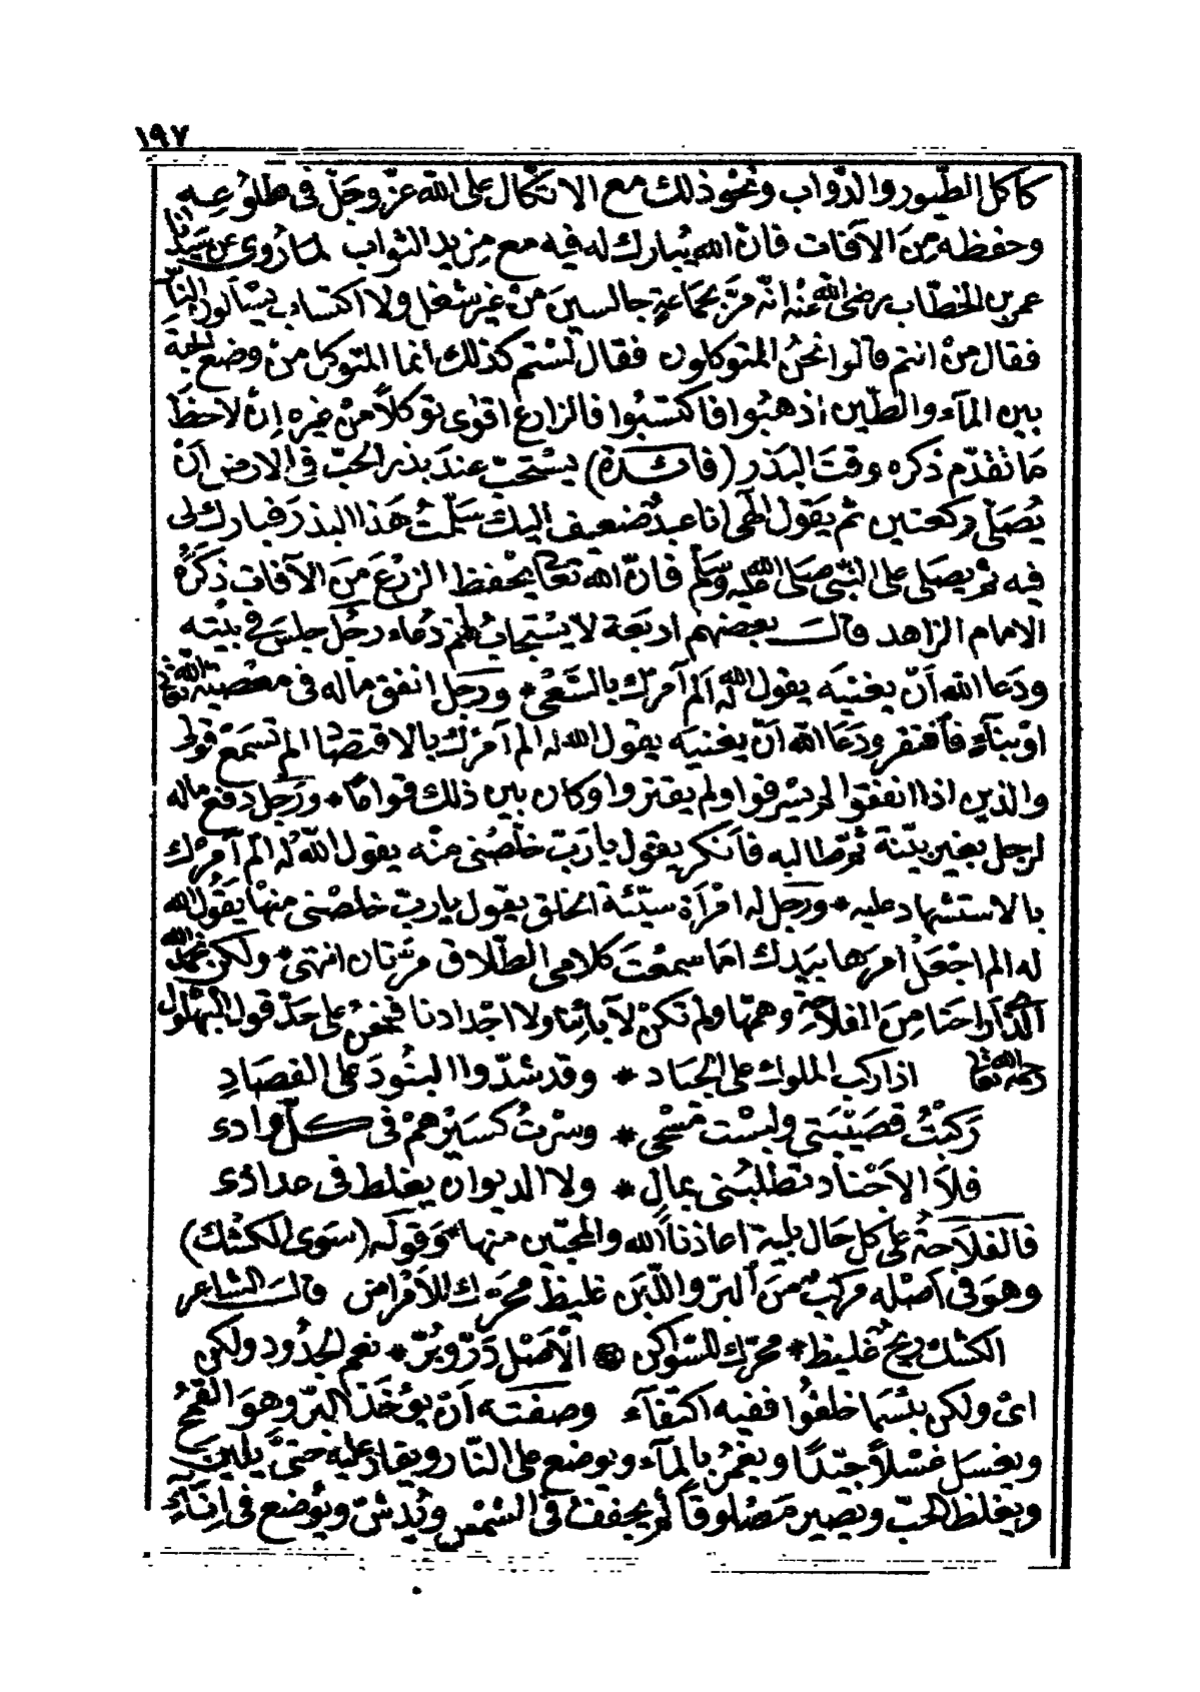 ١٩٧
كاكل الطيور والدّواب ونحو ذلك مع الاتّكال على الله عزّ وجلّ فى طلوعه
وحفظه مِنَ الآفات فانّ الله يُبارك له فيه مع مزيد الثواب لما رُوى عن سَيّدنا
عمر بن الخطّاب رضى الله عنْه انّه مرّ بجماعةٍ جالسين منْ غير شغل ولا اكتساب يسْألون النّاس
فقال منْ انتم قالوا نحنُ المتوكلون فقال لسْتم كذلك انما المتوكل منْ وضع الحبة
بين المآء والطّين اذهبُوا فاكتسبُوا فالزارع اقوى توكلاً منْ غيره إنْ لاحظ
مَا تقدّم ذكره وقتَ البَذر (فائدة) يسْتحبّ عندَ بذر الحبّ فى الارض أنْ
يُصَلّى ركعتين ثم يقول الهى انا عبدٌ ضعيف اليك سَلّمتُ هَذا البذرَ فبارك لى
فيه ثم يصَلى على النّبى صَلى الله عليه وسَلم فانّ الله تعالى يحْفظ الزرْعَ مَن الآفات ذكرهُ
الامام الزاهد قالـــ بعضهم اربَعة لا يسْتجابُ لهمْ دُعاء رجُل جلسَ فى بيْته
ودَعا الله أنّ يغنيَه يقول الله له اَلم آمرْك بالسّعْى * ورَجل انفق مَاله فى معْصيَة الله تعالى
اوْ بنآءٍ فأفتقر ودَعَا الله أنّ يغنيَه يقول الله له الم آمرْك بالاقتصَاد الم تسمَعْ قولى
والذين اذا انفقوا لم يسْرفوا ولم يقتروا وكان بين ذلك قوامًا * ورَجل دفع ماله
لرجل بغير بيّنة ثمّ طالبه فأنكر يقول يا رَبّ خلّصْنى منْه يقول الله له الم آمرْك
بالاستشهاد عليه * ورَجل له امْرَأة سيّئة الخلق يقول يا ربّ خلصْنى منهْا يقُول الله
له الم اجْعَل امرَها بيَدك امَا سمعْتَ كلامى الطّلاق مرّتان انتهى * ولكن نحْمَد الله
الّذى اراحَنا مِنَ الفلاحَة وهمّها ولم تكنْ لآبائنا ولا اجْدادنا فنحْنُ على حَدّ قول البُهْلول
رحمه الله تعالى اذا ركب الملوك على الجيَاد * وقد شدّوا البنُودَ على القصَادِ
رَكبْتُ قصَيْبَتى ولبسْت مسْحى * وسْرتُ كسَيْرهمْ فى كـــلّ وادى
فلاَ الاَجْناد تطلبُنى بمال * ولا الديوان يغلط فى عدادى
فالفلاَحَةُ على كل حَال بلية اعاذناَ الله والمحبّين منها * وَقوله (سَوى الكشْك)
وهوَ فى اَصْله مركبٌ منَ البرّ واللّبَن غليظٌ محرّك للأمْراض قالــ الشاعر
الكشْك ريحٌ غليظ * محرّك للسّواكن ۞ الأصْل دَرّ وبُرّ * نعم الجُدود ولكن
اىْ ولكن بئسَما خلفُوا ففيه اكتفآء وصفته أنْ يؤخَذ البرّ وهوَ القمْحُ
ويغسَل غسْلاً جيّدًا ويغمرُ بالمآء ويوضع على النّار ويقاد عليه حتىّ يلينَ
ويغلظ الحبّ ويصير مَصْلوقاً ثم يجففُ فى الشمْس ويُدشّ ويُوضع فى اِنآءٍ